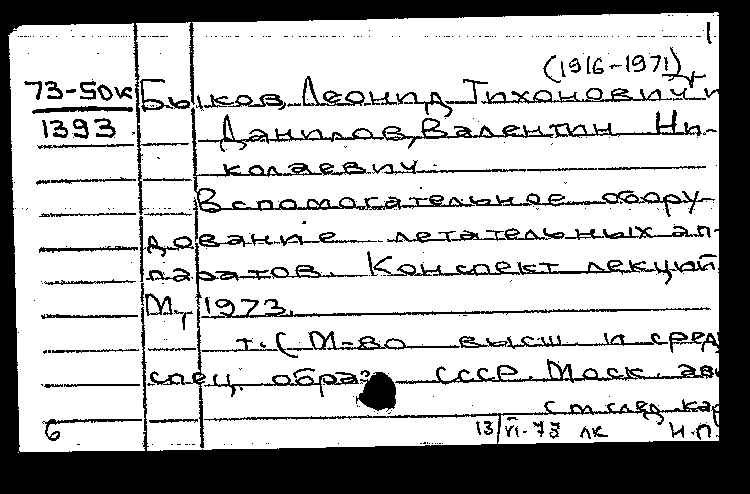 1
(1916-1971)
73-50к Быков, Леонид Тихонович и
1393 Данилов, Валентин Ни-
колаевич.
Вспомогательное обору-
дование летательных ап-
паратов. Конспект лекций
М., 1973.
т. (М-во высш. и сред
спец. образ СССР. Моск. ави
См. след. кар
6 13/VI-73 лк Н.П.